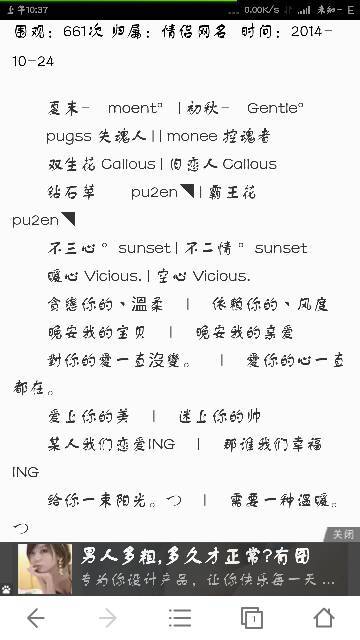 上午10:37 0.00K/s 未知- E
围观：661次 归属：情侣网名 时间：2014-
10-24
夏末- moent° | 初秋- Gentle°
pugss 失魂人 | | monee 控魂者
双生花 Callous | 旧恋人 Callous
钻石草 pu2en◥ | 霸王花
pu2en◥
不三心 ° sunset | 不二情 ° sunset
暖心 Vicious. | 空心 Vicious.
贪恋你的、温柔 | 依赖你的、风度
晚安我的宝贝 | 晚安我的亲爱
對你的愛一直沒變。 | 愛你的心一直
都在。
爱上你的美 | 迷上你的帅
某人我们恋爱ING | 那谁我们幸福
ING
给你一束阳光。つ | 需要一种温暖。
つ
关闭
男人多粗,多久才正常?有图
专为你设计产品，让你快乐每一天...
1